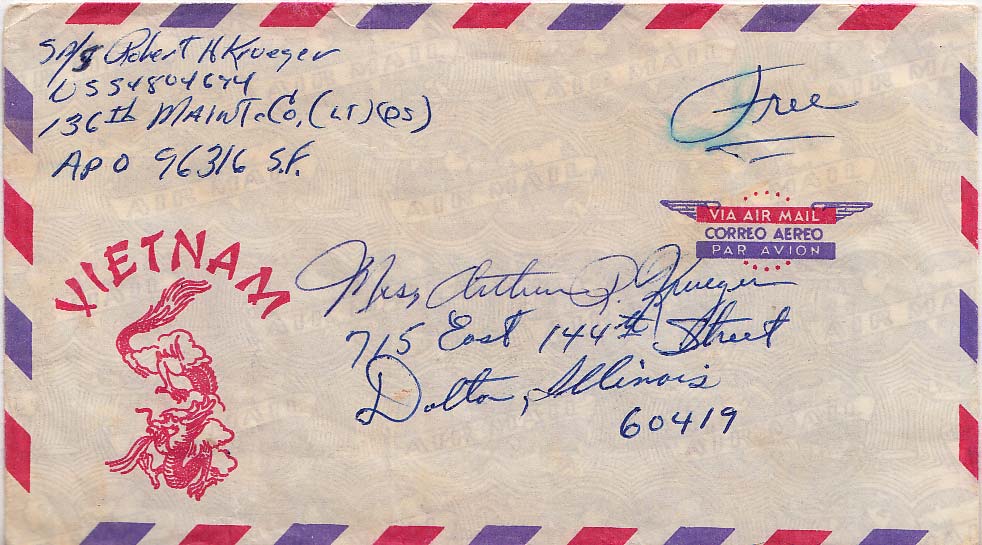 SP/5 Robert H Krueger
US54804644
136th MAINT. CO, (LT) (DS)
APO 96316 S.F.
Free
VIA AIR MAIL
CORREO AEREO
PAR AVION
VIETNAM
Mrs, Arthur P. Krueger
715 East 144th Street
Dolton, Illinois
60419